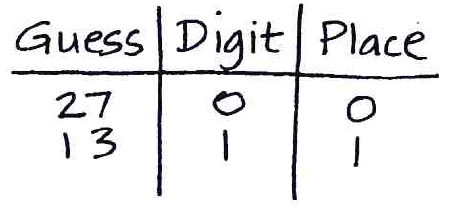 Guess Digit Place
27 0 0
13 1 1